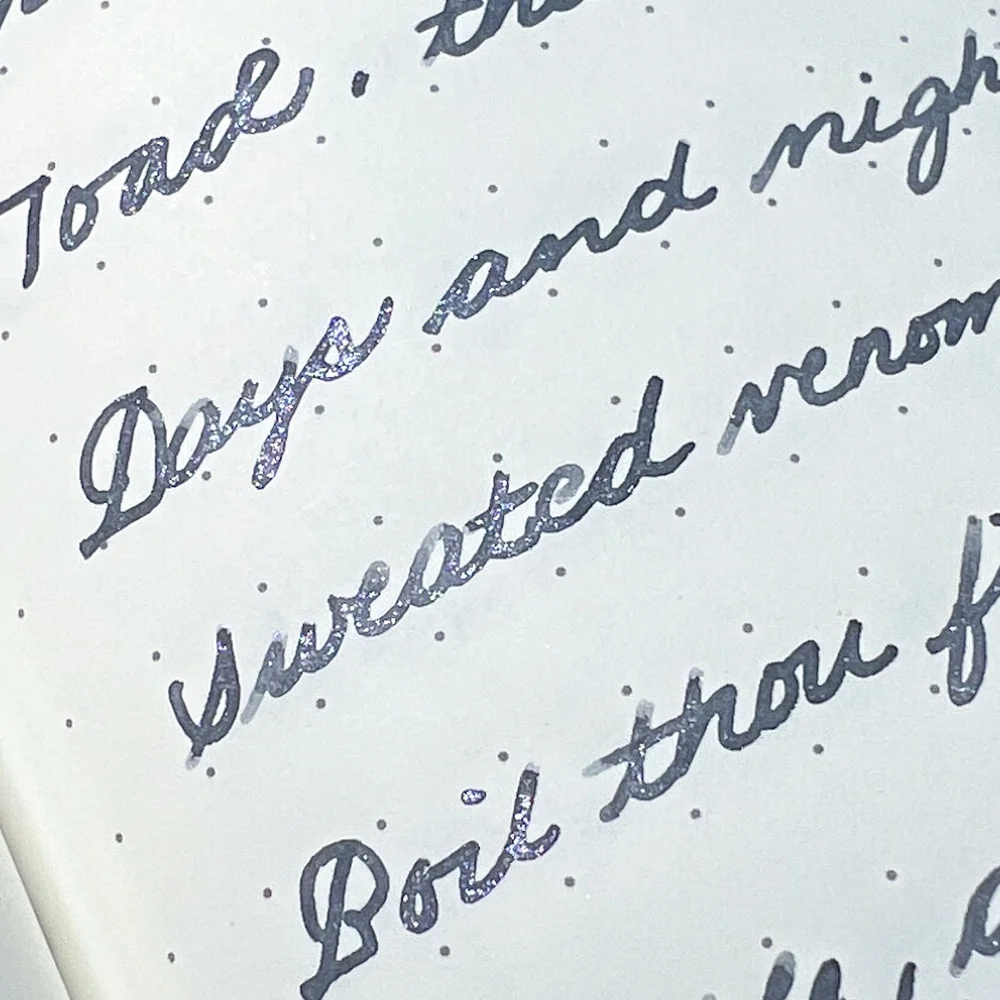 Toad, th
Days and nigh
Sweated venom
Boil thou f